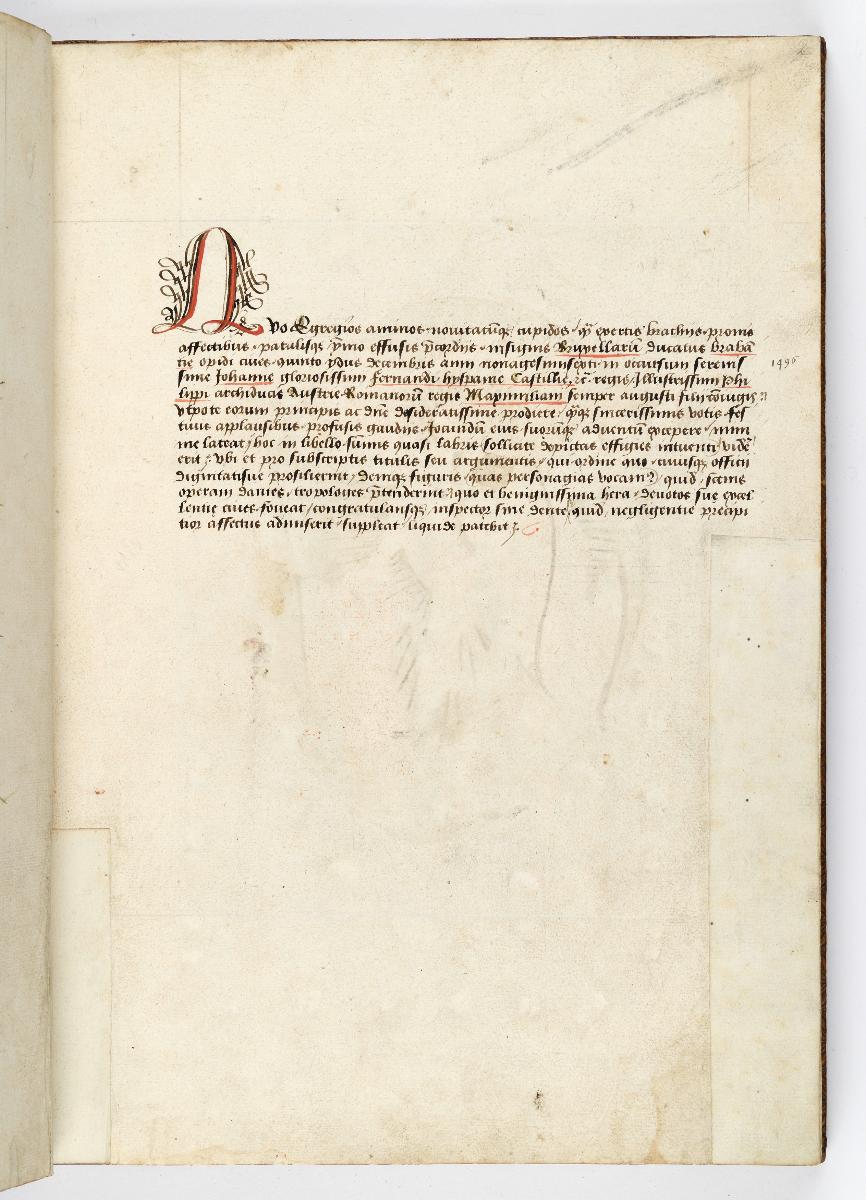 Quo Egregios animos novitatūqꝫ cupidos ꝙ exertis brachiis pronis
affectibus patulisqꝫ ymo effusis p̄cordiis insignis Bruxellarū ducatus brabā
tie opidi cives quinto ydus decembris anni nonagesimisexti in occursum serenis
sime Johanne gloriosissimi fernandi hyspanie Castillie ꝛc̄ regis Illustrissimi phi
lippi archiducis Austrie Romanorū regis Maximiliani semper augusti filii coniugis
1496
utpote eorum principis ac dn̄e desideratissime prodiere qꝫ sincerissimis votis fes
tivis applausibus profusis gaudiis Jocundū eius suorūqꝫ adventū excepere mini
me lateat hoc in libello sūmis quasi labris sollicite depictas effigies intuenti vidē
erit Ubi et pro subscriptis titulis seu argumentis qui ordine quo cuiusqꝫ officii
dignitatisve prosilierint demqꝫ figuris quas personagias vocant quid scenis
operam dantes tropologes p̄tenderint quo et benignissima hera devotos sue excel
lentie cives foveat congratulansqꝫ inspector sine dente quid negligentie precipi
tior affectus admiserit suppleat liquide patebit